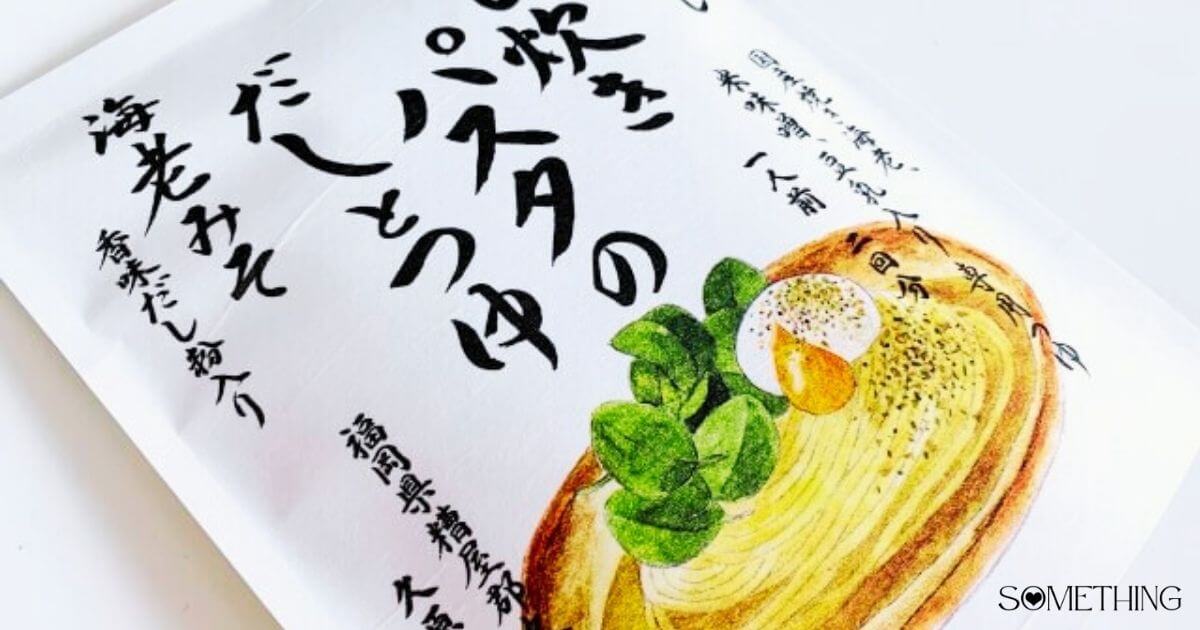 国産焼き海老、
米味噌、豆乳入り専用つゆ
一人前 二回分
炊き
パスタの
だしとつゆ
海老みそ
香味だし粉入り
福岡県糟屋郡
久原
SOMETHING